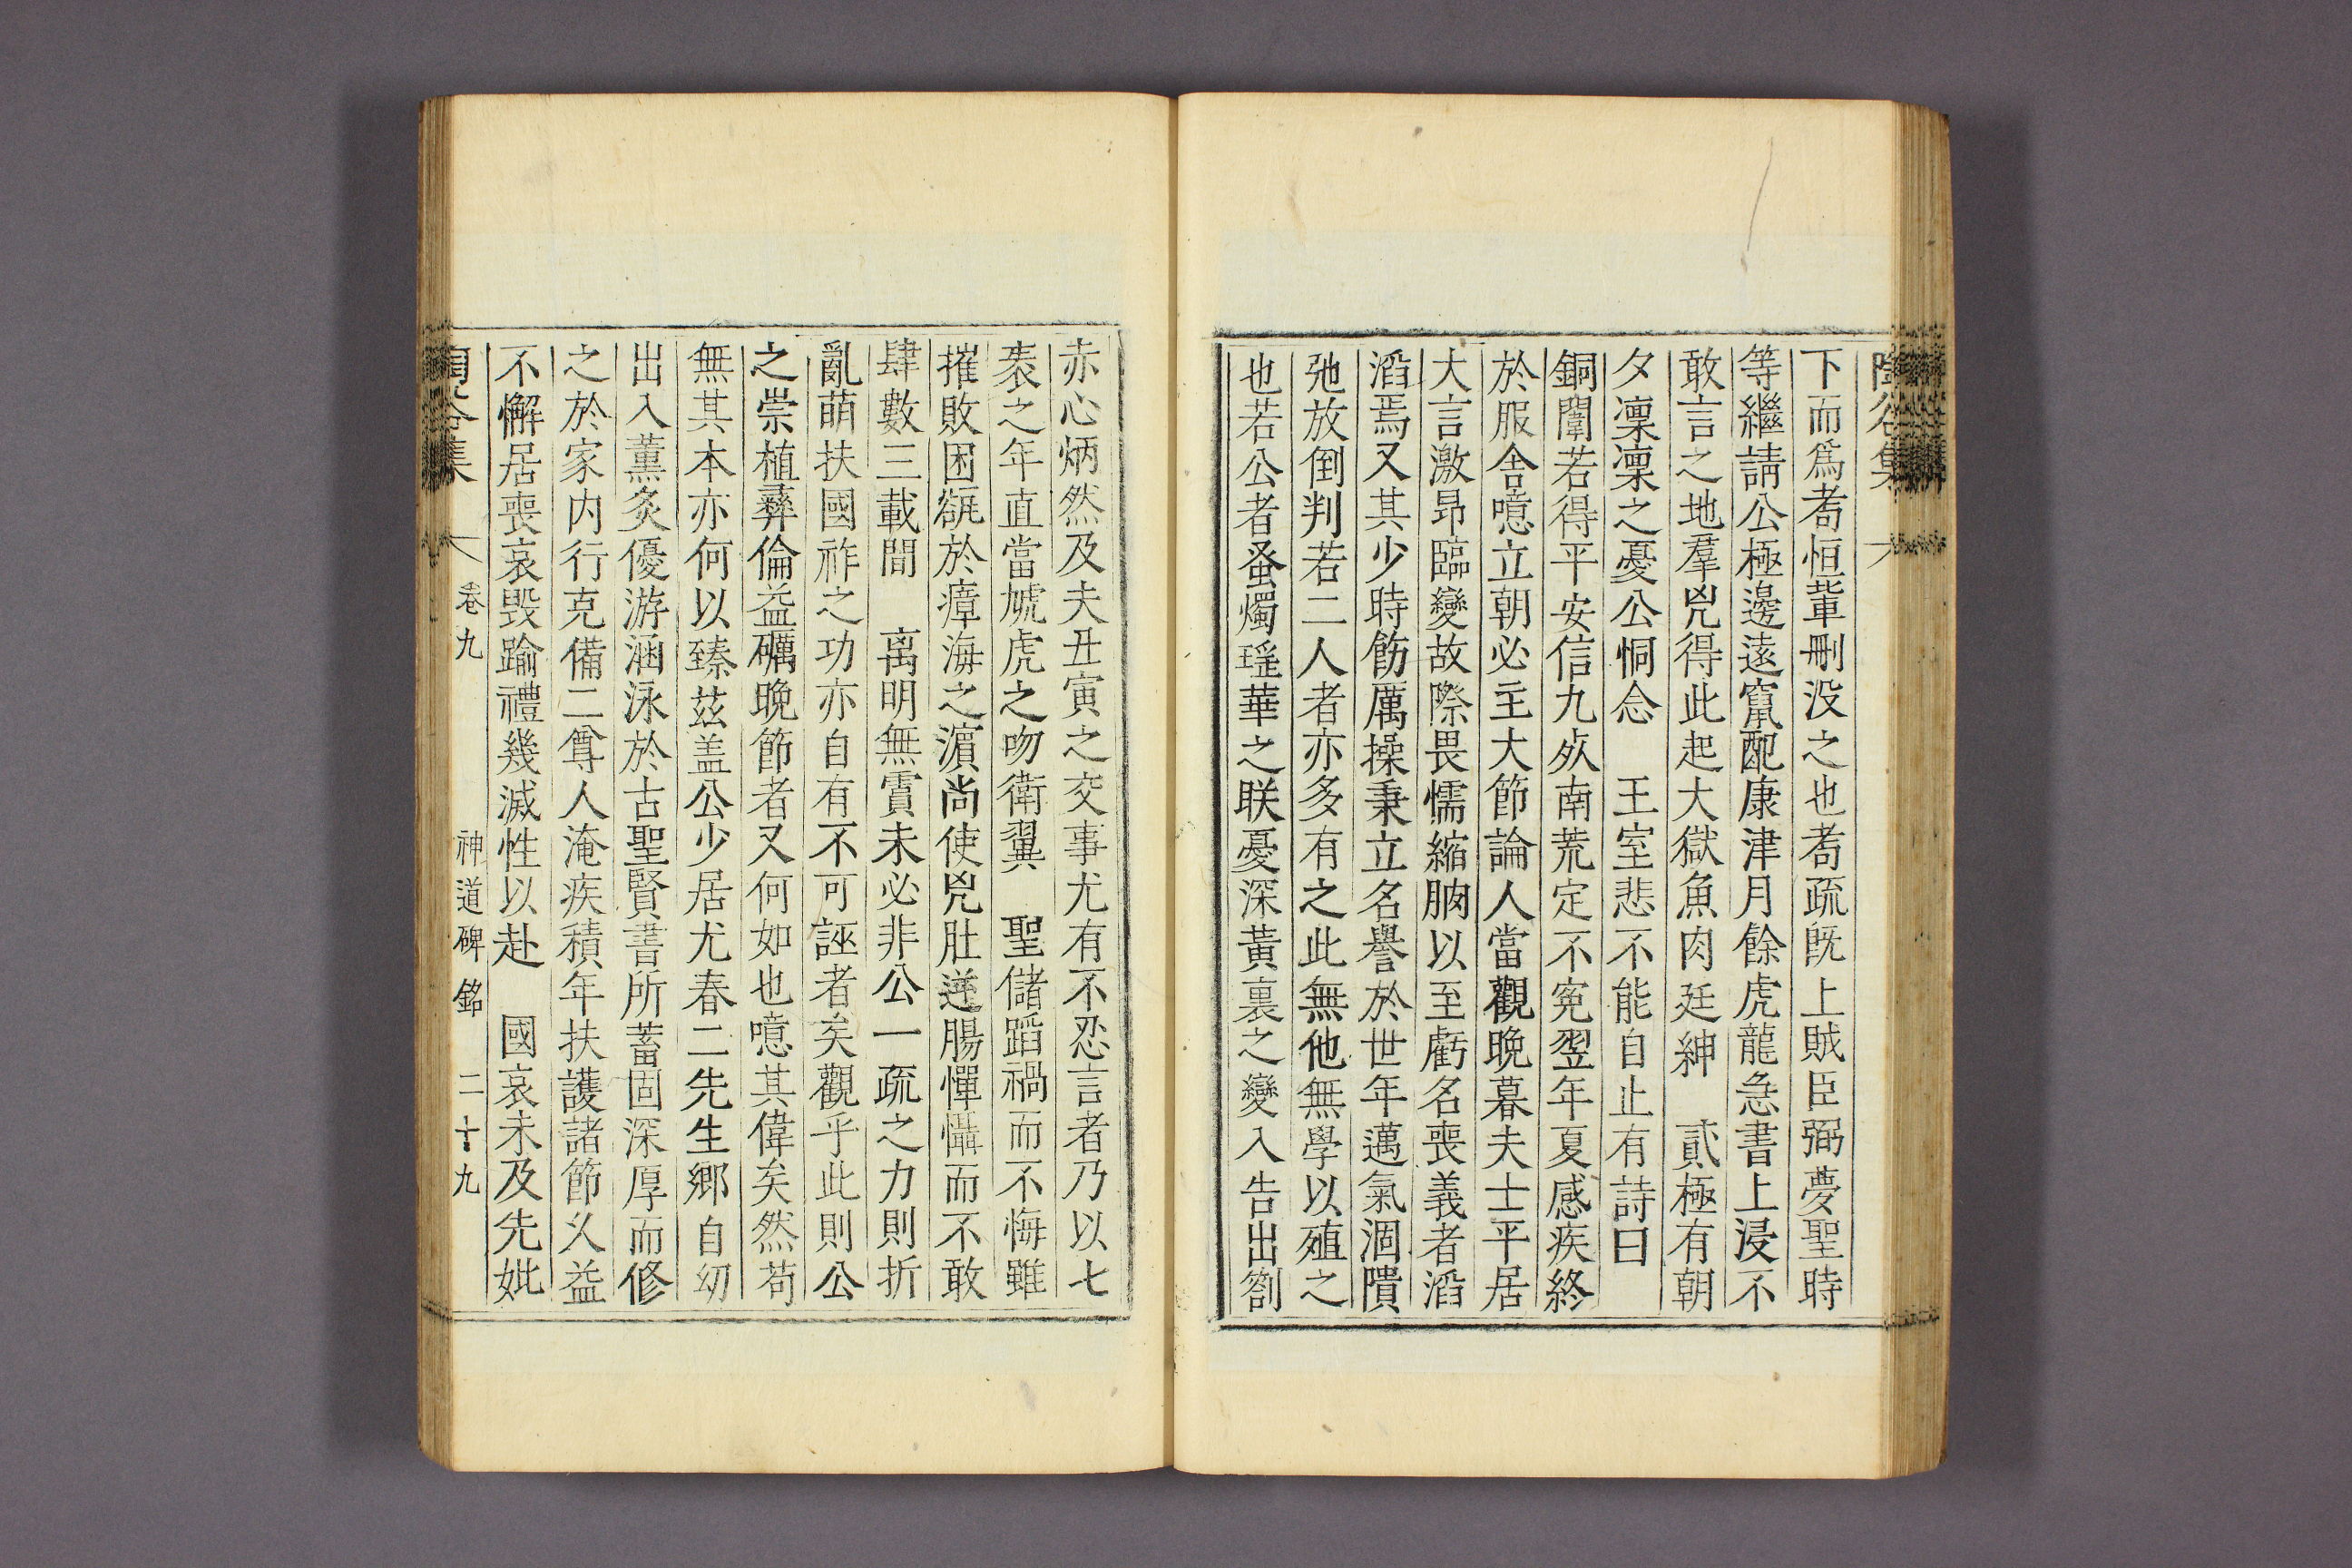 陶谷集
下而爲耉恒軰刪没之也耉疏旣上賊臣弼夢聖時
等繼請公極邊逺竄配康津月餘虎龍急書上浸不
敢言之地羣兇得此起大獄魚肉廷紳　貳極有朝
夕凜凜之憂公恫念　王室悲不能自止有詩曰
銅闈若得平安信九死南荒定不寃翌年夏感疾終
於服舍噫立朝必主大節論人當觀晩暮夫士平居
大言激昂臨變故際畏懦縮朒以至虧名喪義者滔
滔焉又其少時飭厲操秉立名譽於世年邁氣涸隤
弛放倒判若二人者亦多有之此無他無學以殖之
也若公者蚤燭瑤華之眹憂深黃裏之變入告出劄
赤心炳然及夫丑寅之交事尤有不忍言者乃以七
袠之年直當虓虎之吻衛翼　聖儲蹈禍而不悔雖
摧敗困㼌於瘴海之濵尚使兇肚逆腸憚懾而不敢
肆數三載間　离明無霣未必非公一疏之力則折
亂萌扶國祚之功亦自有不可誣者矣觀乎此則公
之崇植彞倫益礪晩節者又何如也噫其偉矣然苟
無其本亦何以臻兹盖公少居尤春二先生鄕自㓜
出入薰炙優游涵泳於古聖賢書所蓄固深厚而修
之於家内行克備二尊人淹疾積年扶護諸節乆益
不懈居喪哀毁踰禮幾滅性以赴　國哀未及先妣
陶谷集　卷九　神道碑銘　二十九